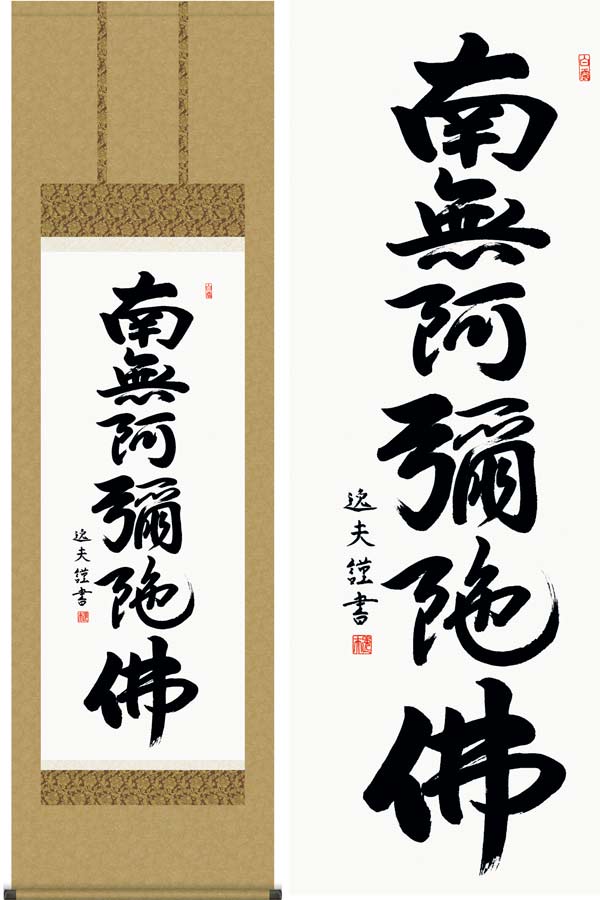 南無阿彌陀佛
逸夫謹書
南無阿彌陀佛
逸夫謹書